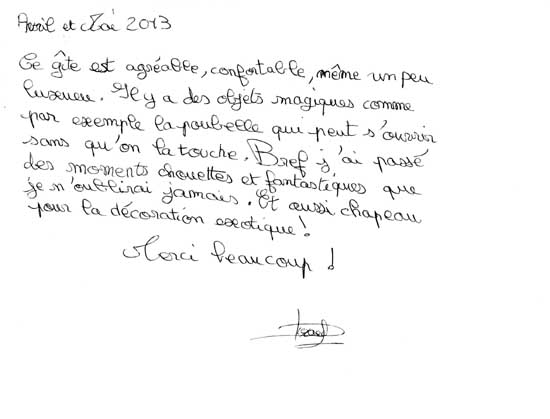 Avril et Mai 2013
Ce gîte est agréable, confortable, même un peu
luxueu. Il y a des objets magiques comme
par exemple la poubelle qui peut s'ouvrir
sans qu'on la touche. Bref j'ai passé
des moments chouettes et fantastiques que
je n'oublirai jamais. Et aussi chapeau
pour la décoration exotique !
Merci beaucoup !